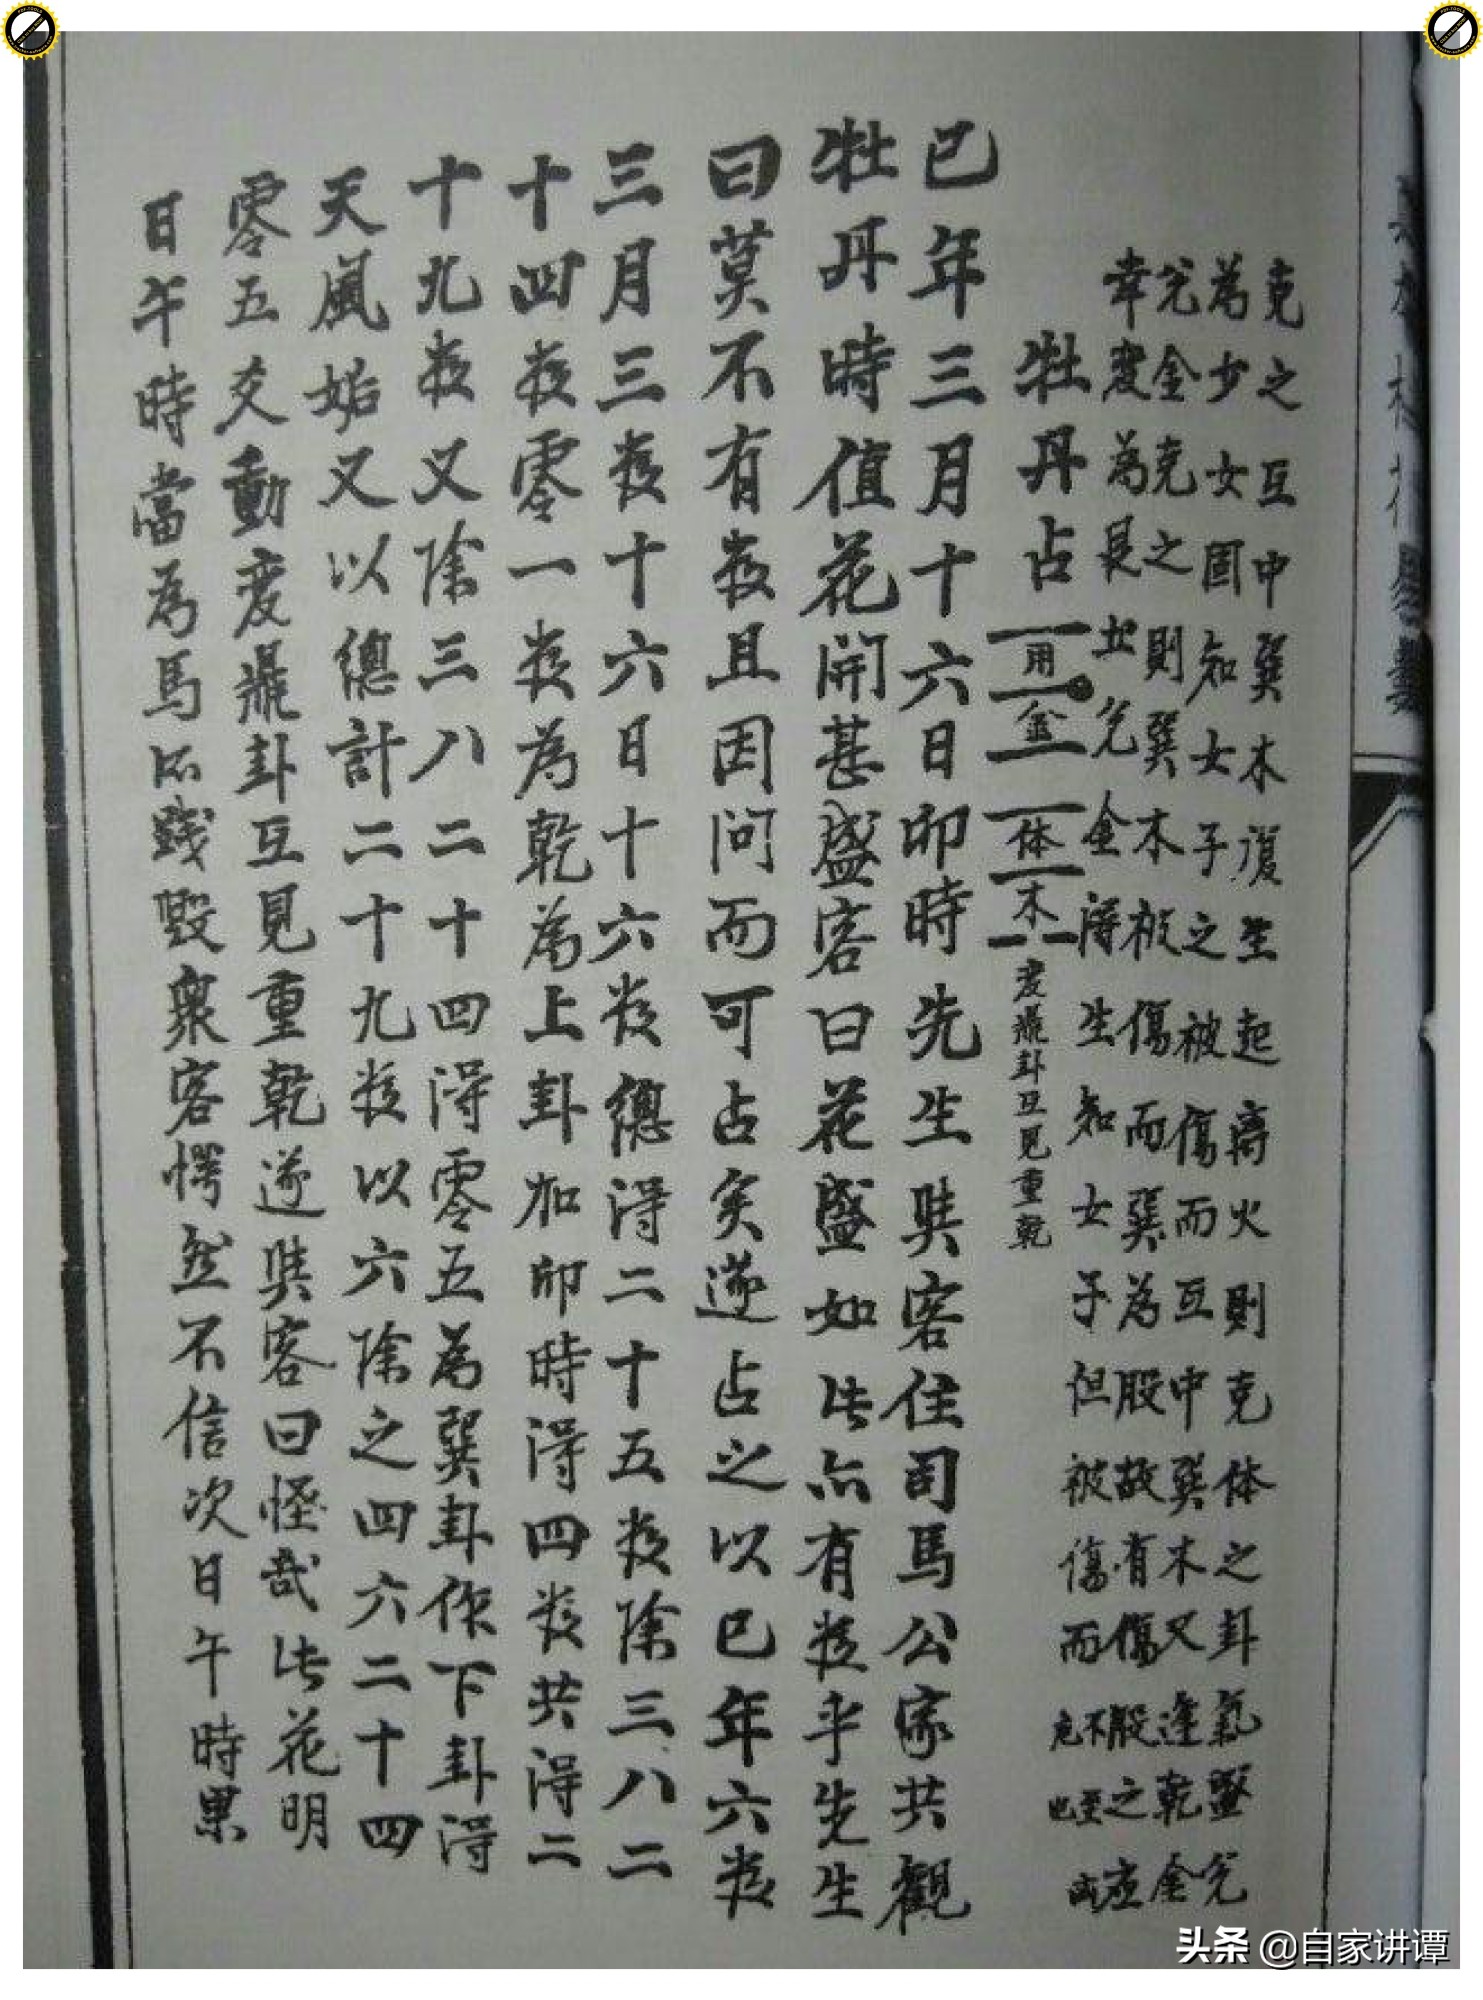 克之互中巽木復生起离火則克体之卦氣盛兌
為少女固知女子之被傷而互中巽木又逢乾金
兌金克之則巽木被傷而巽為股故有傷股之应
幸变為艮土兌金得生知女子但被傷而不至克也
牡丹占
用金
体木
变鼎卦互見重乾
巳年三月十六日卯時先生與客往司馬公家共觀
牡丹時值花開甚盛客曰花盛如此亦有数乎先生
曰莫不有数且因問而可占矣遂占之以巳年六数
三月三数十六日十六数總得二十五数除三八二
十四数零一数為乾為上卦加卯時得四数共得二
十九数又除三八二十四得零五為巽卦作下卦得
天風姤又以總計二十九数以六除之四六二十四
零五爻動变鼎卦互見重乾遂與客曰怪哉此花明
日午時當為馬所踐毀衆客愕然不信次日午時果
头条 @自家讲谭